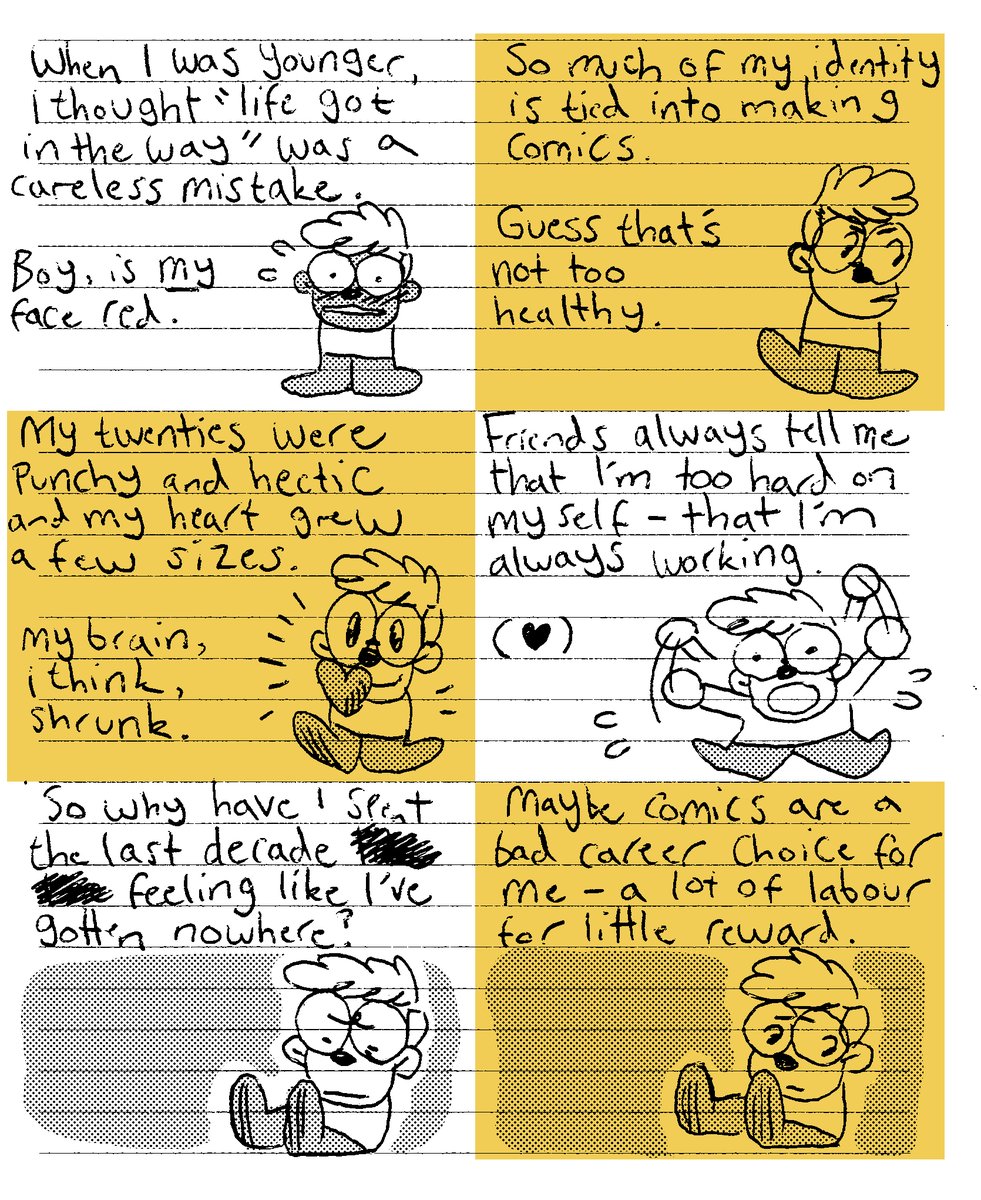 When I was younger,
i thought "life got
in the way" was a
careless mistake.
Boy, is my
face red.
So much of my identity
is tied into making
comics.
Guess that's
not too
healthy.
My twenties were
Punchy and hectic
and my heart grew
a few sizes.
my brain,
i think,
shrunk.
Friends always tell me
that I'm too hard on
myself - that I'm
always working.
(♥)
So why have I spent
the last decade
feeling like I've
gotten nowhere?
Maybe comics are a
bad career choice for
me - a lot of labour
for little reward.